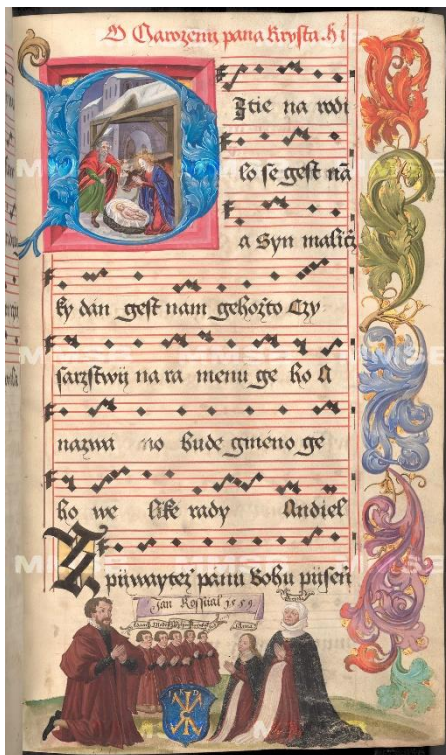 O Narozenij pana Krysta. hi
Itie na rodi
lo se gest nā
a Syn maličž
ky dán gest nam gehožto Czy
sarzstwij na ra menu ge ho A
nazwa no bude gmēno ge
ho we like rady Andiel
Zpijwaytež panu Bohu pijseň
Jan Kossual 1559
Anna